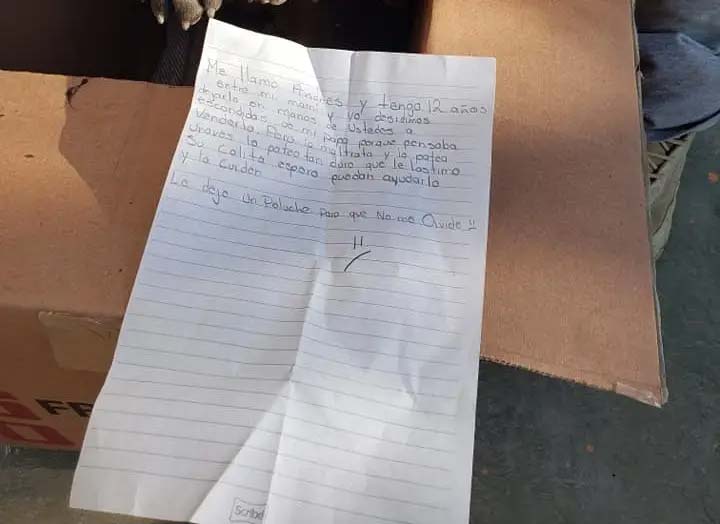 Me llamo Andres y tengo 12 años
entre mi mami y yo desidimos
dejarlo en manos de Ustedes a
escondidas de mi papá porque pensaba
Venderlo. Pero lo maltrata y lo patea
Unaves lo pateo tan duro que le lastimo
su colita espero puedan ayudarlo
y lo Cuiden
Le dejo Un Peluche Para que No me Olvide
Scribe
FR